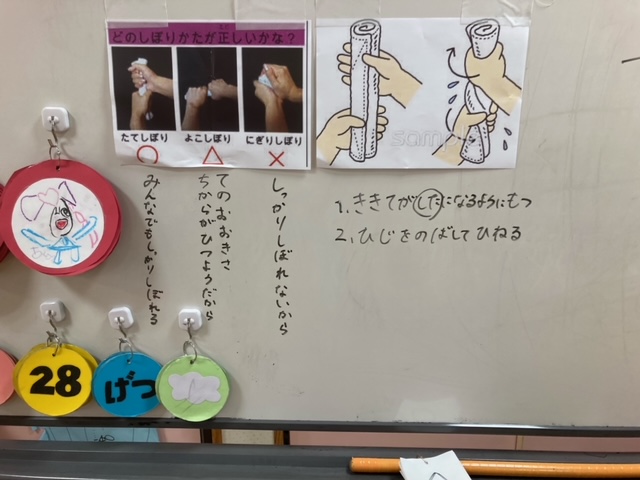 どのしぼりかたが正しいかな？
たてしぼり
よこしぼり
にぎりしぼり
○
△
×
しっかりしぼれないから
てのおおきさ
ちからがひつようだから
みんなでもしっかりしぼれる
sample
1、ききてがしたになるようにもつ
2、ひじをのばしてひねる
28
げつ